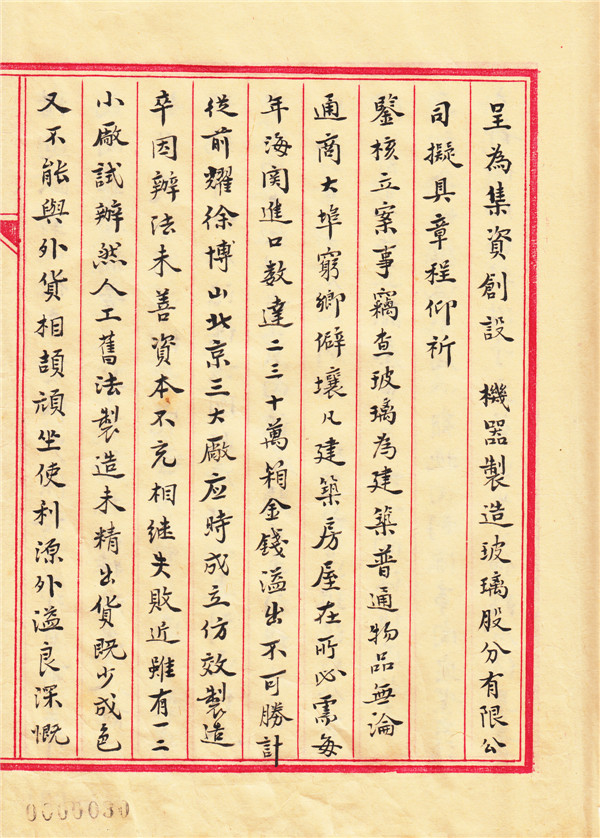 呈為集資創設　機器製造玻璃股分有限公
司擬具章程仰祈
鑒核立案事竊查玻璃為建築普通物品無論
通商大埠窮鄉僻壤凡建築房屋在所必需每
年海関進口数達二三十萬箱金錢溢出不可勝計
從前耀徐博山北京三大廠应時成立仿效製造
卒因辦法未善資本不充相継失敗近雖有一二
小廠試辦然人工舊法製造未精出貨既少成色
又不能與外貨相頡頏坐使利源外溢良深慨
0000030